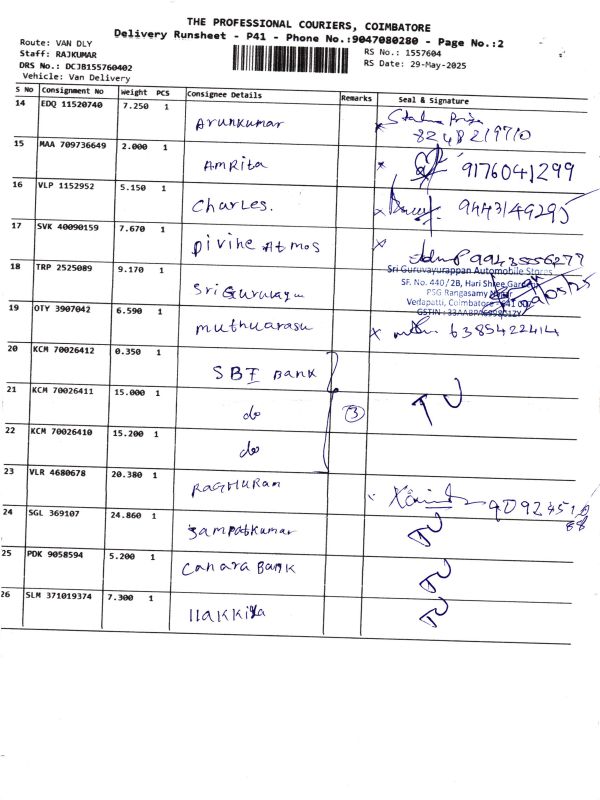 THE PROFESSIONAL COURIERS, COIMBATORE
Delivery Runsheet - P41 - Phone No.:9047080280 - Page No.:2
Route: VAN DLY
Staff: RAJKUMAR
DRS No.: DCJB155760402
Vehicle: Van Delivery
RS No.: 1557604
RS Date: 29-May-2025
S No Consignment No Weight PCS Consignee Details Remarks Seal & Signature
14 EDQ 11520740 7.250 1 Arunkumar 8248219710
15 MAA 709736649 2.000 1 Amrita 9176041299
16 VLP 1152952 5.150 1 Charles. 9443149295
17 SVK 40090159 7.670 1 Divine Atmos 99435556277
18 TRP 2525089 9.170 1 Sri Guruvayu
Sri Guruvayurappan Automobile Stores
SF. No. 440/2B, Hari Shree Garden
PSG Rangasamy Nagar
Vedapatti, Coimbatore
19 OTY 3907042 6.590 1 muthuarasu 6385422414
20 KCM 70026412 0.350 1 SBI Bank
21 KCM 70026411 15.000 1 do 3 TU
22 KCM 70026410 15.200 1 do
23 VLR 4680678 20.380 1 RAGHURAM
24 SGL 369107 24.860 1 Sampatkumar TU
25 PDK 9058594 5.200 1 Canara Bank TU
26 SLM 371019374 7.300 1 Ilakkiya TU